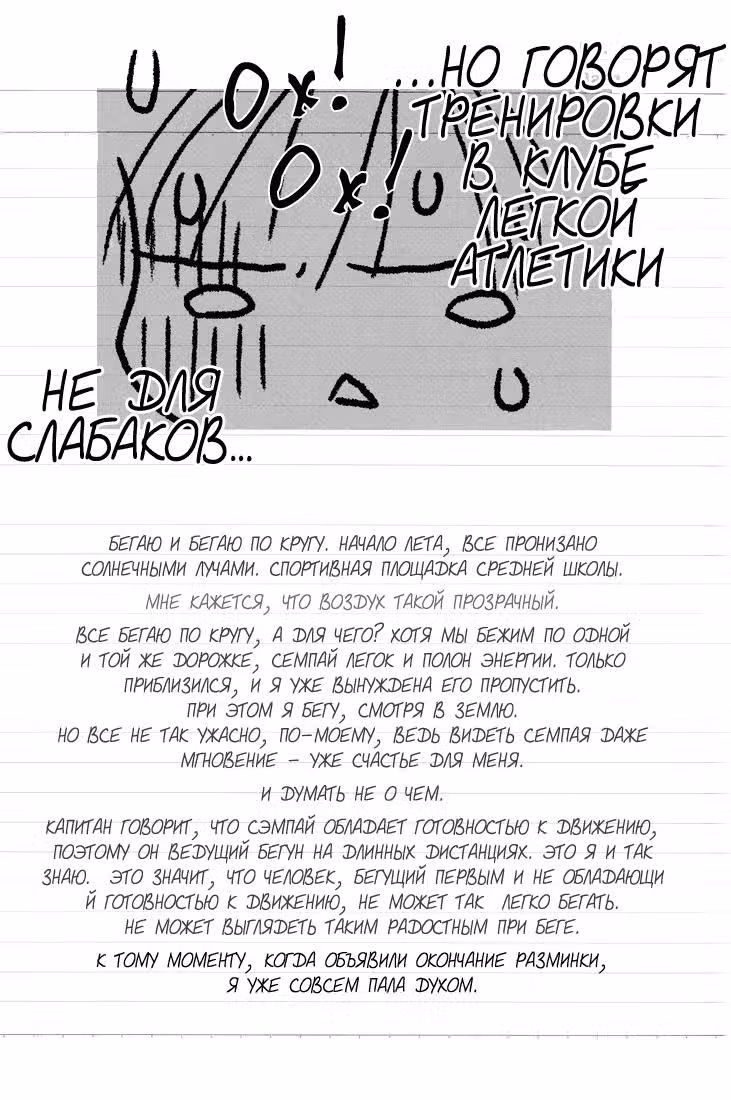 Ох!
Ох!
...НО ГОВОРЯТ
ТРЕНИРОВКИ
В КЛУБЕ
ЛЕГКОЙ
АТЛЕТИКИ
НЕ ДЛЯ
СЛАБАКОВ...
БЕГАЮ И БЕГАЮ ПО КРУГУ. НАЧАЛО ЛЕТА, ВСЕ ПРОНИЗАНО
СОЛНЕЧНЫМИ ЛУЧАМИ. СПОРТИВНАЯ ПЛОЩАДКА СРЕДНЕЙ ШКОЛЫ.
МНЕ КАЖЕТСЯ, ЧТО ВОЗДУХ ТАКОЙ ПРОЗРАЧНЫЙ.
ВСЕ БЕГАЮ ПО КРУГУ, А ДЛЯ ЧЕГО? ХОТЯ МЫ БЕЖИМ ПО ОДНОЙ
И ТОЙ ЖЕ ДОРОЖКЕ, СЕМПАЙ ЛЕГОК И ПОЛОН ЭНЕРГИИ. ТОЛЬКО
ПРИБЛИЗИЛСЯ, И Я УЖЕ ВЫНУЖДЕНА ЕГО ПРОПУСТИТЬ.
ПРИ ЭТОМ Я БЕГУ, СМОТРЯ В ЗЕМЛЮ.
НО ВСЕ НЕ ТАК УЖАСНО, ПО-МОЕМУ, ВЕДЬ ВИДЕТЬ СЕМПАЯ ДАЖЕ
МГНОВЕНИЕ - УЖЕ СЧАСТЬЕ ДЛЯ МЕНЯ.
И ДУМАТЬ НЕ О ЧЕМ.
КАПИТАН ГОВОРИТ, ЧТО СЭМПАЙ ОБЛАДАЕТ ГОТОВНОСТЬЮ К ДВИЖЕНИЮ,
ПОЭТОМУ ОН ВЕДУЩИЙ БЕГУН НА ДЛИННЫХ ДИСТАНЦИЯХ. ЭТО Я И ТАК
ЗНАЮ. ЭТО ЗНАЧИТ, ЧТО ЧЕЛОВЕК, БЕГУЩИЙ ПЕРВЫМ И НЕ ОБЛАДАЮЩИ
Й ГОТОВНОСТЬЮ К ДВИЖЕНИЮ, НЕ МОЖЕТ ТАК ЛЕГКО БЕГАТЬ.
НЕ МОЖЕТ ВЫГЛЯДЕТЬ ТАКИМ РАДОСТНЫМ ПРИ БЕГЕ.
К ТОМУ МОМЕНТУ, КОГДА ОБЪЯВИЛИ ОКОНЧАНИЕ РАЗМИНКИ,
Я УЖЕ СОВСЕМ ПАЛА ДУХОМ.